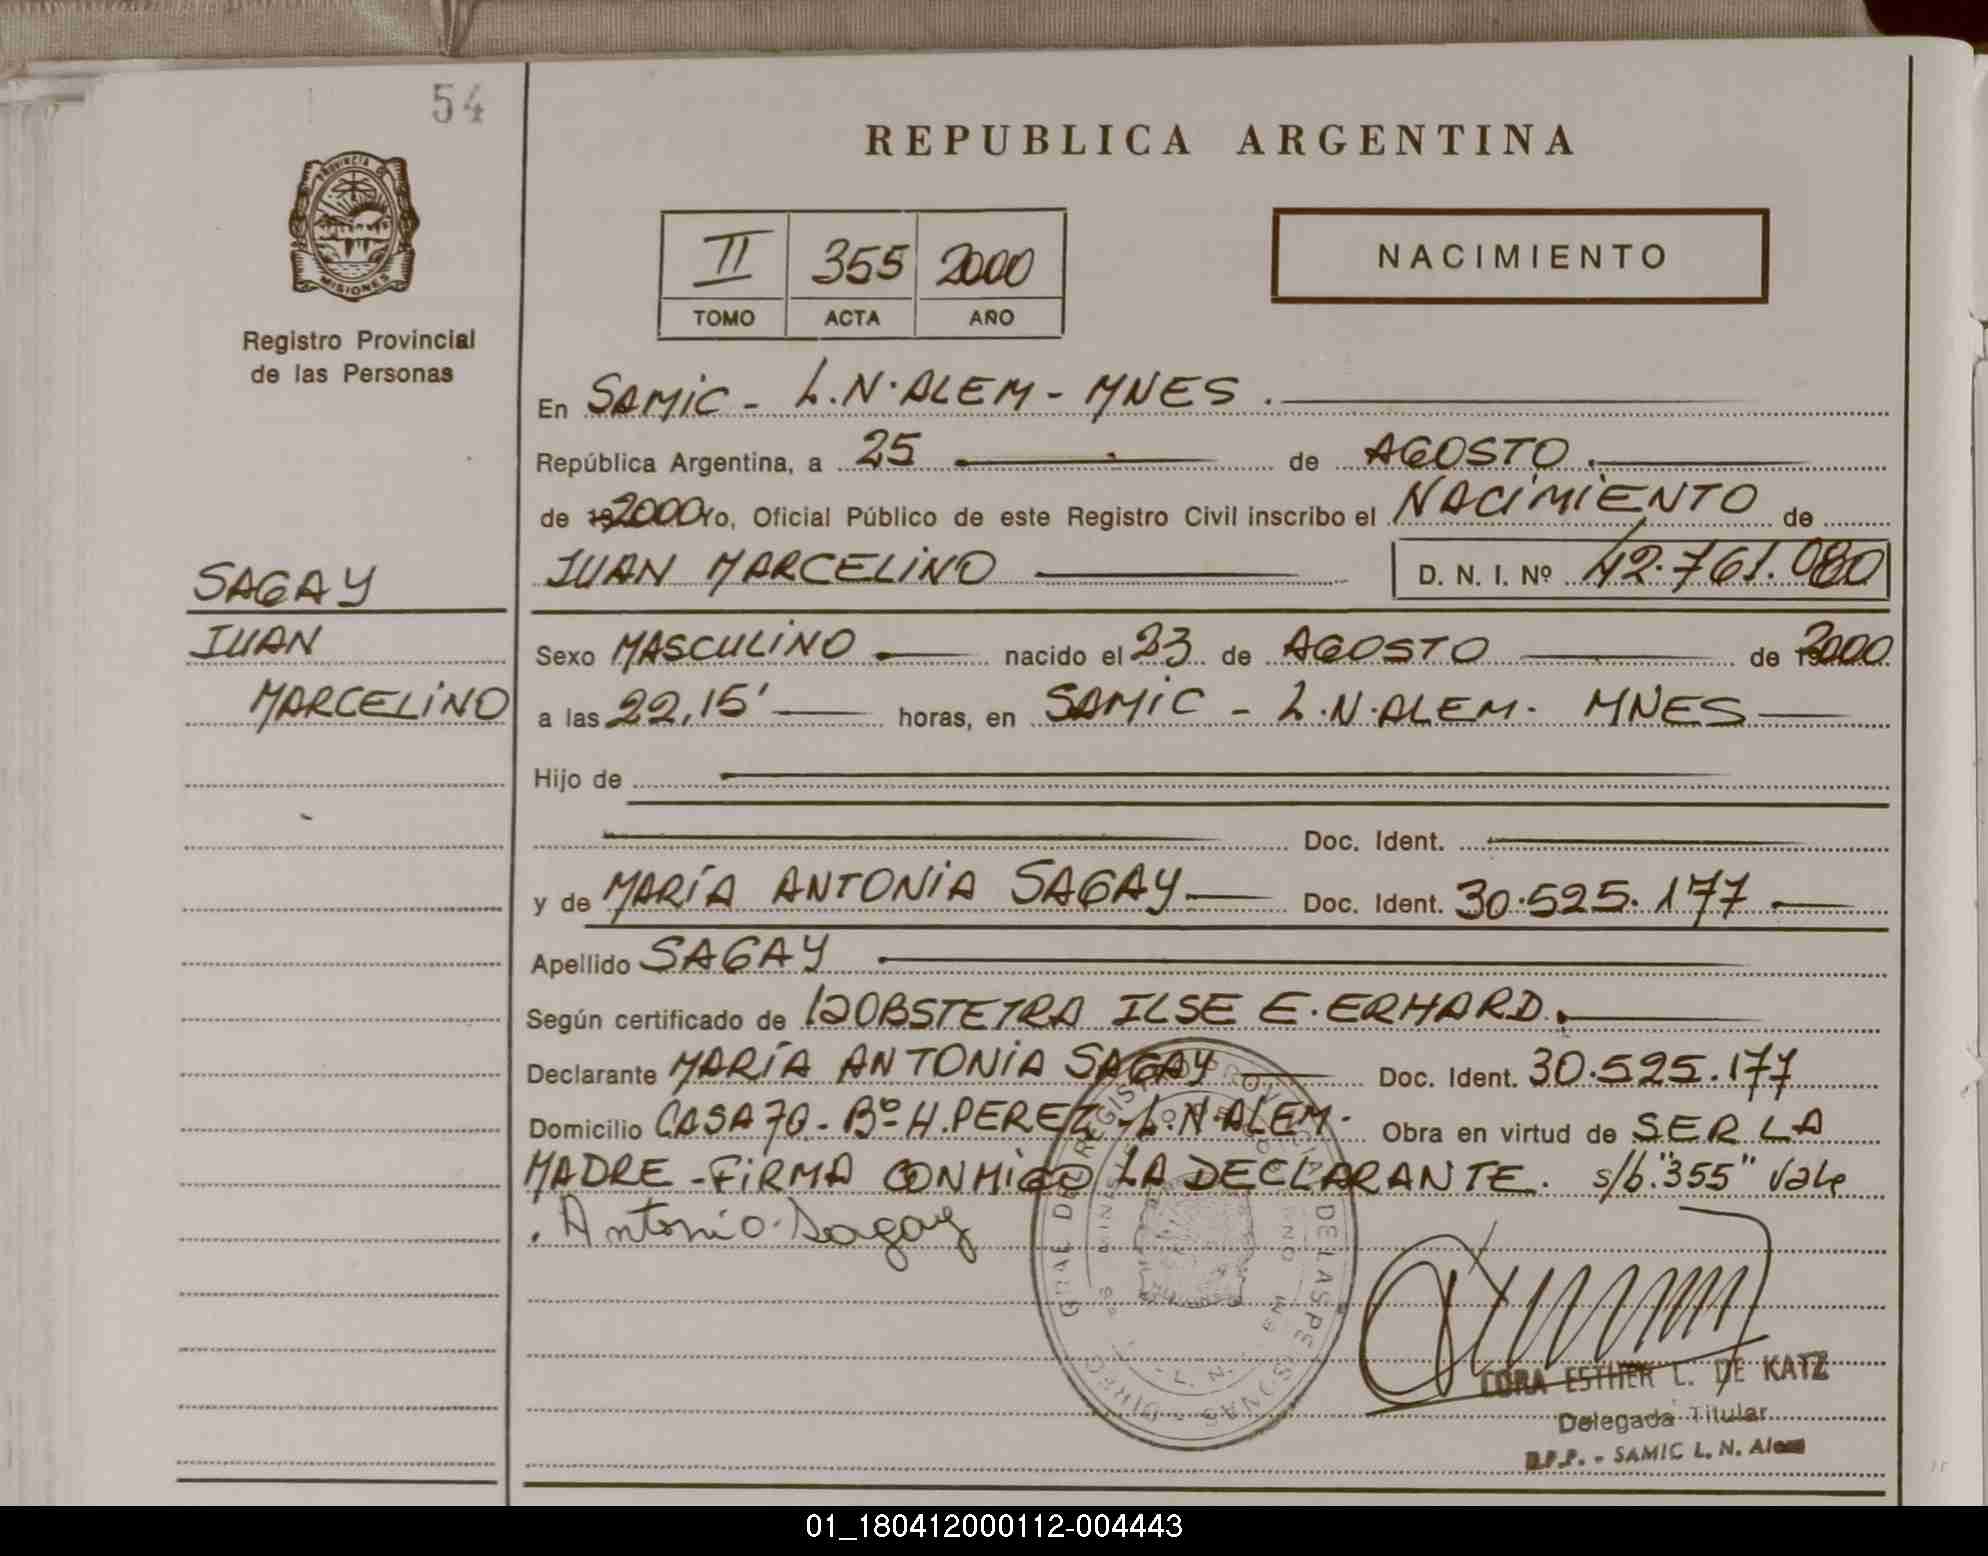 54
REPUBLICA ARGENTINA
PROVINCIA DE
MISIONES
Registro Provincial
de las Personas
II 355 2000
TOMO ACTA AÑO
NACIMIENTO
En SAMIC - L.N. ALEM - MNES.
República Argentina, a 25 de AGOSTO.
de 192000 Yo, Oficial Público de este Registro Civil inscribo el NACIMIENTO de
JUAN MARCELINO D. N. I. Nº 42.761.080
SAGAY
JUAN
MARCELINO
Sexo MASCULINO nacido el 23 de AGOSTO de 192000
a las 22,15' horas, en SAMIC - L.N. ALEM. MNES
Hijo de
Doc. Ident.
y de MARÍA ANTONIA SAGAY Doc. Ident. 30.525.177
Apellido SAGAY
Según certificado de la OBSTETRA ILSE E. ERHARD.
Declarante MARÍA ANTONIA SAGAY Doc. Ident. 30.525.177
Domicilio CASA 70 - Bº H. PEREZ - L.N. ALEM. Obra en virtud de SER LA
MADRE - FIRMA CONMIGO LA DECLARANTE. s/b. "355" Vale
. Antonio Sagay
DIREC. GRAL DEL REGISTRO PROVINCIAL DE LAS PERSONAS
CORA ESTHER L. DE KATZ
Delegada Titular
R.P.P. - SAMIC L. N. Alem
01_180412000112-004443